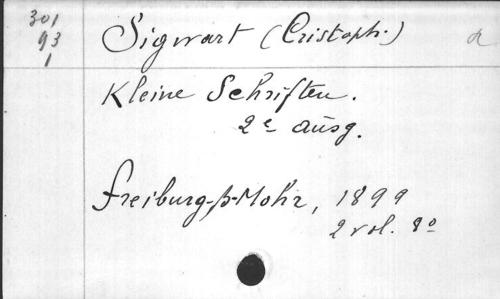 301
93
1
Sigwart (Cristoph.)
Kleine Schriften.
2e Ausg.
Freiburg-i-Mohr, 1899
2 vol. 8º